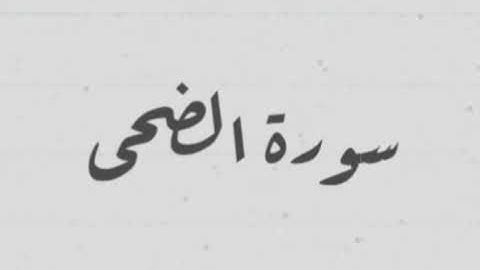 سورة الضحى